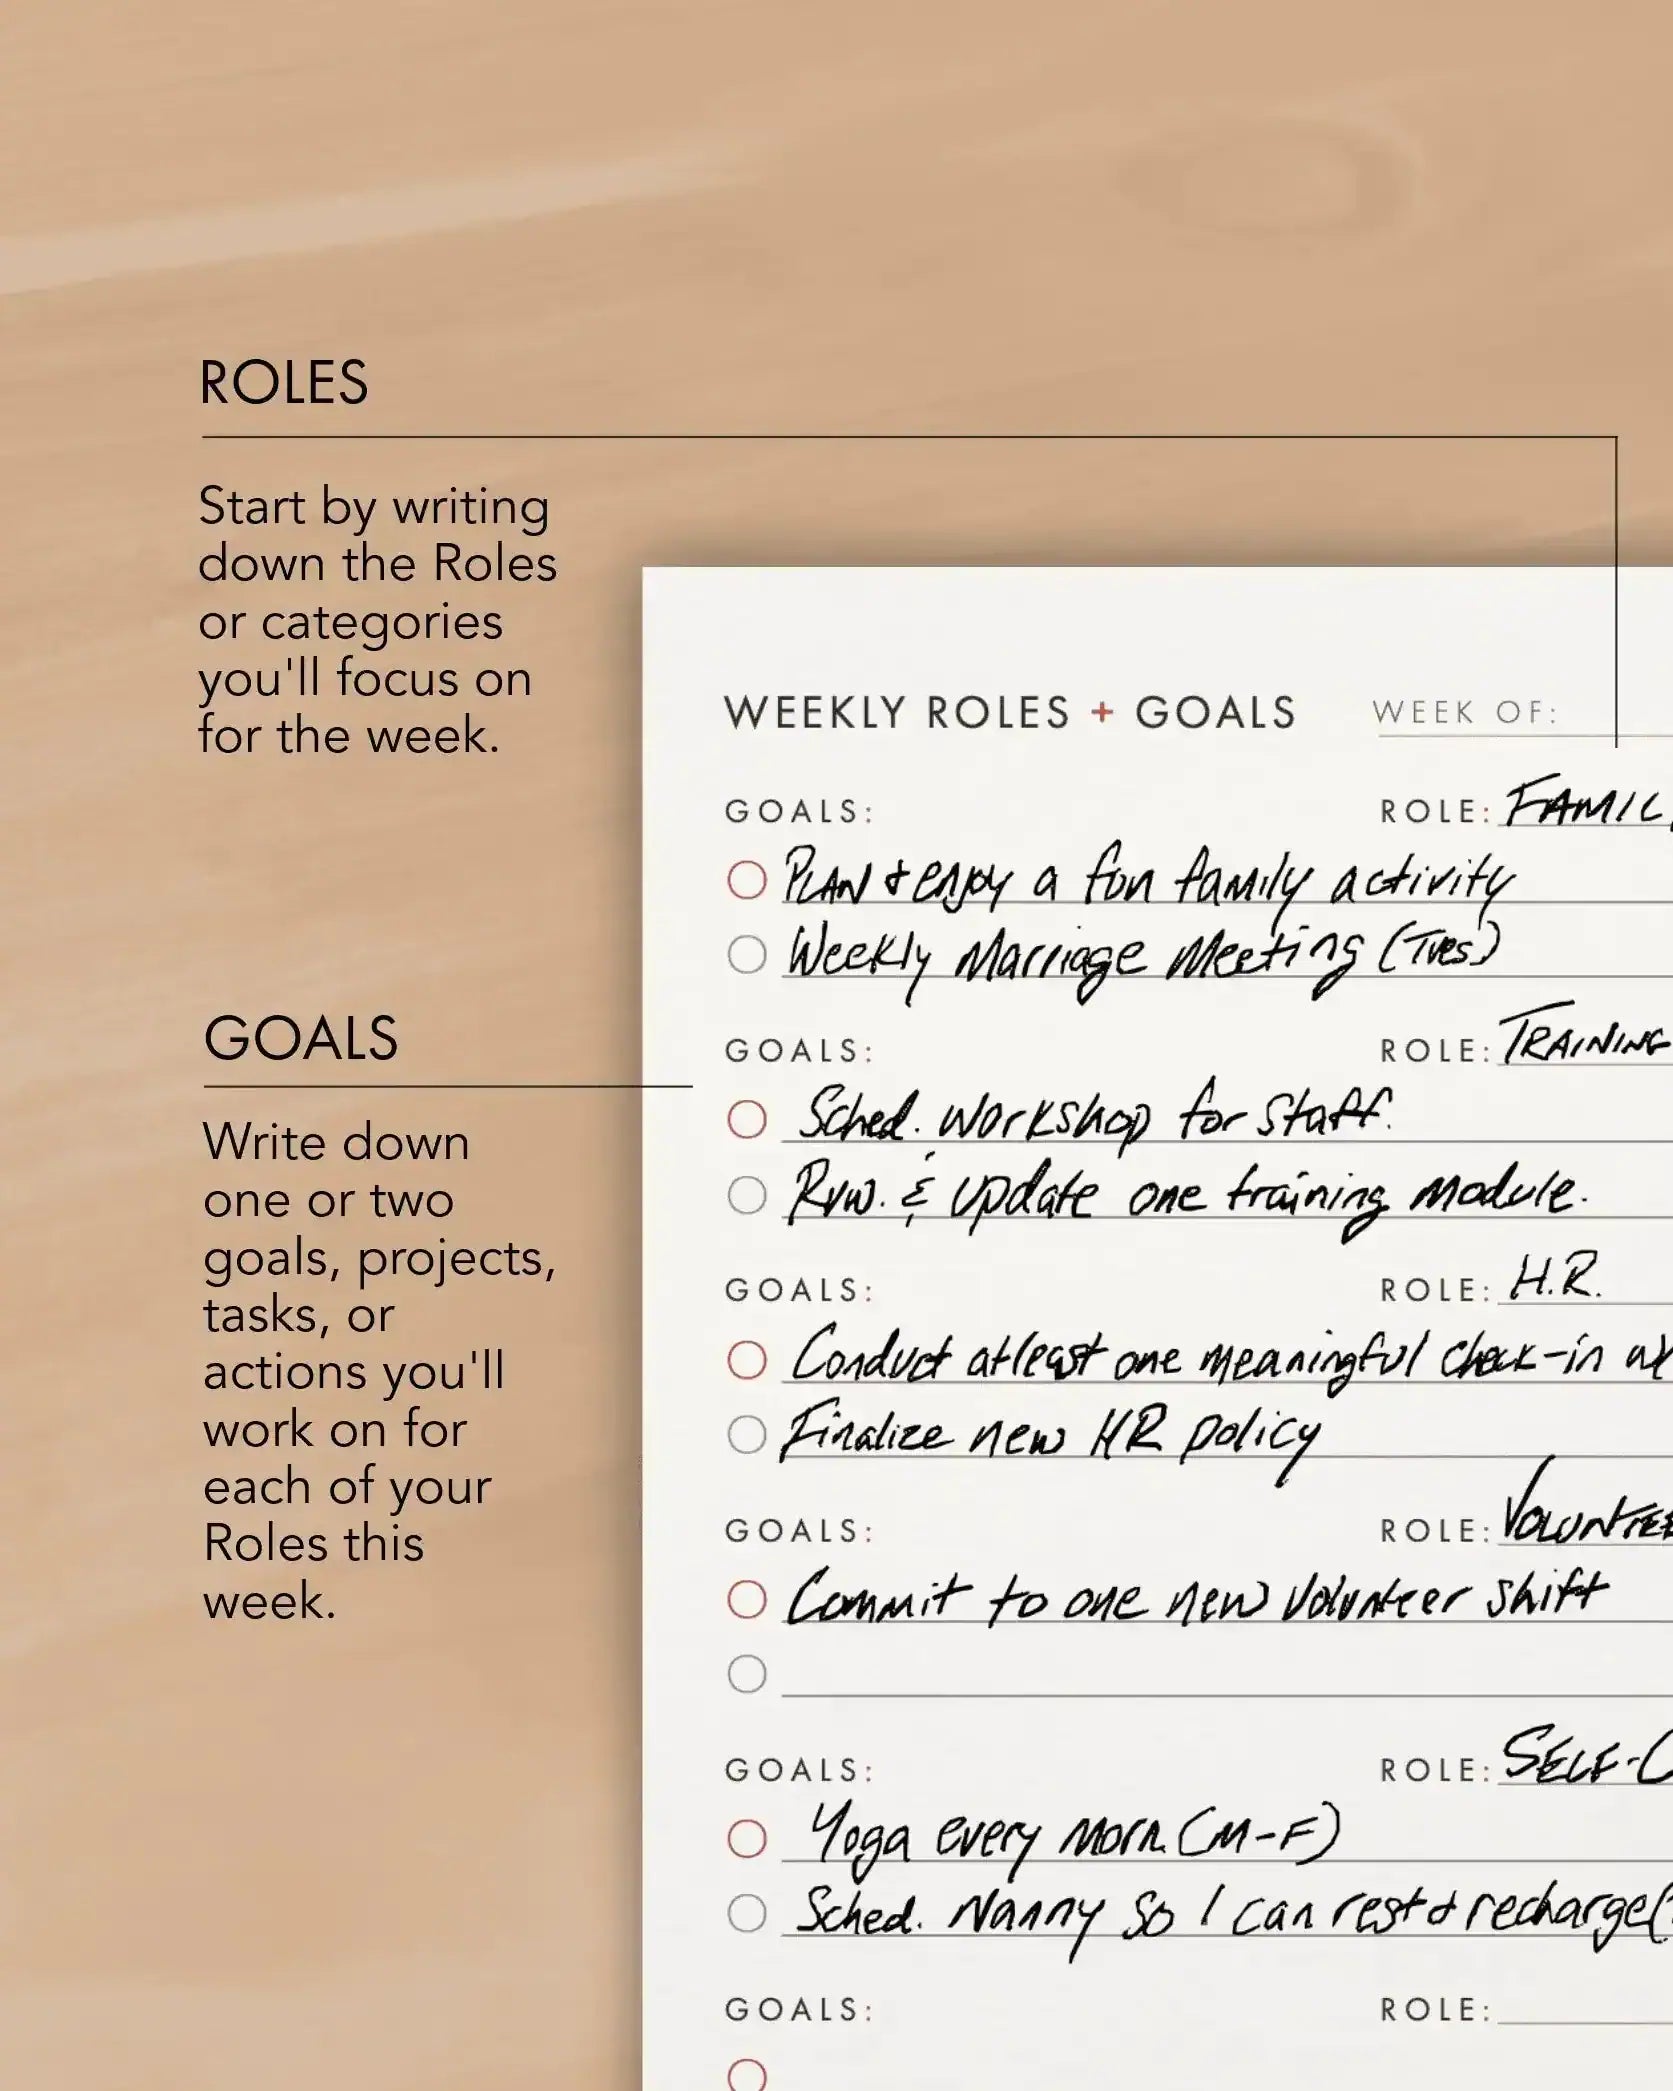 ROLES
Start by writing
down the Roles
or categories
you'll focus on
for the week.
GOALS
Write down
one or two
goals, projects,
tasks, or
actions you'll
work on for
each of your
Roles this
week.
WEEKLY ROLES + GOALS WEEK OF:
GOALS: ROLE: FAMIL
PLAN & enjoy a fun family activity
Weekly Marriage Meeting (Tues)
GOALS: ROLE: TRAINING
Sched. workshop for staff.
Rvw. & update one training module.
GOALS: ROLE: H.R.
Conduct atleast one meaningful check-in w/
Finalize new HR policy
GOALS: ROLE: VOLUNTEE
Commit to one new volunteer shift
GOALS: ROLE: SELF-C
Yoga every morn. (M-F)
Sched. Nanny so I can rest & recharge (
GOALS: ROLE: